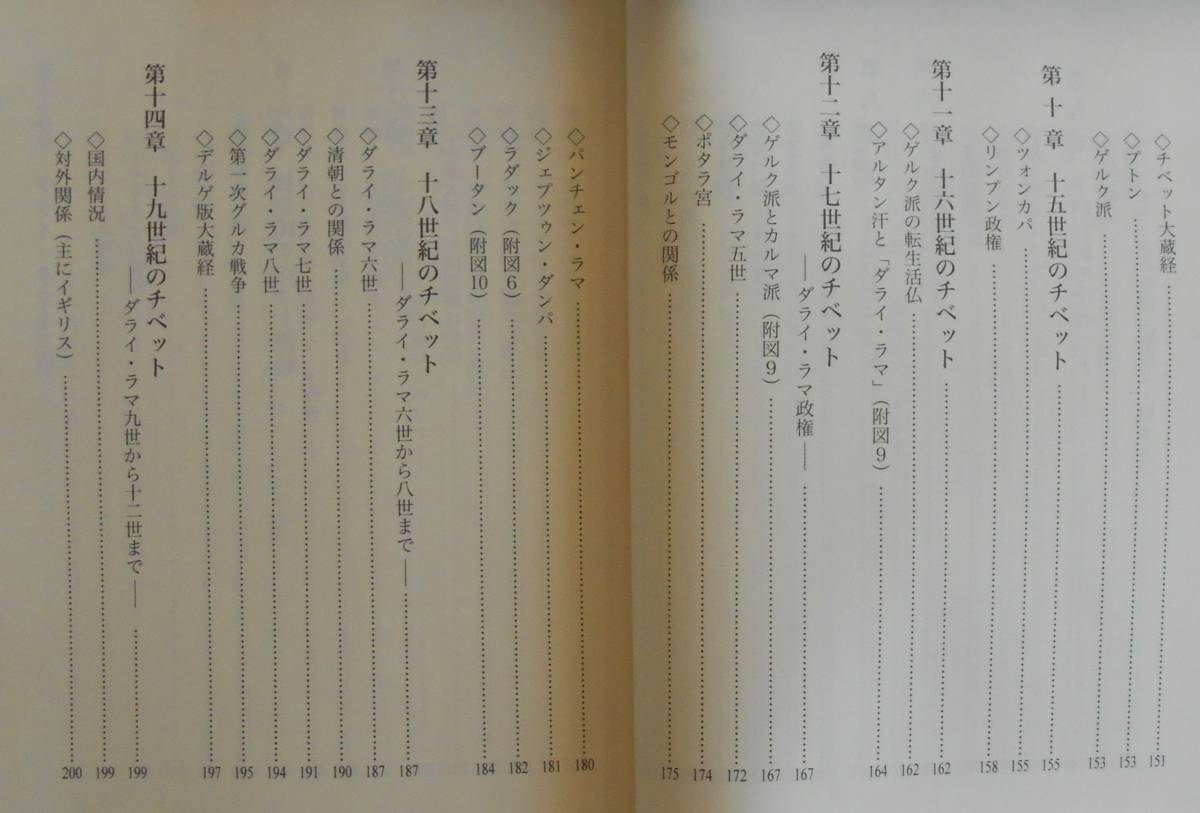 ◇チベット大蔵経……151
◇プトン……153
◇ゲルク派……153
第十章 十五世紀のチベット……155
◇ツォンカパ……155
◇リンプン政権……158
第十一章 十六世紀のチベット……162
◇ゲルク派の転生活仏……162
◇アルタン汗と「ダライ・ラマ」（附図9）……164
第十二章 十七世紀のチベット
――ダライ・ラマ政権――……167
◇ゲルク派とカルマ派（附図9）……167
◇ダライ・ラマ五世……172
◇ポタラ宮……174
◇モンゴルとの関係……175
◇パンチェン・ラマ……180
◇ジェプツゥン・ダンパ……181
◇ラダック（附図6）……182
◇ブータン（附図10）……184
第十三章 十八世紀のチベット
――ダライ・ラマ六世から八世まで――……187
◇ダライ・ラマ六世……187
◇清朝との関係……190
◇ダライ・ラマ七世……191
◇ダライ・ラマ八世……194
◇第一次グルカ戦争……195
◇デルゲ版大蔵経……197
第十四章 十九世紀のチベット
――ダライ・ラマ九世から十二世まで――……199
◇国内情況……199
◇対外関係（主にイギリス）……200